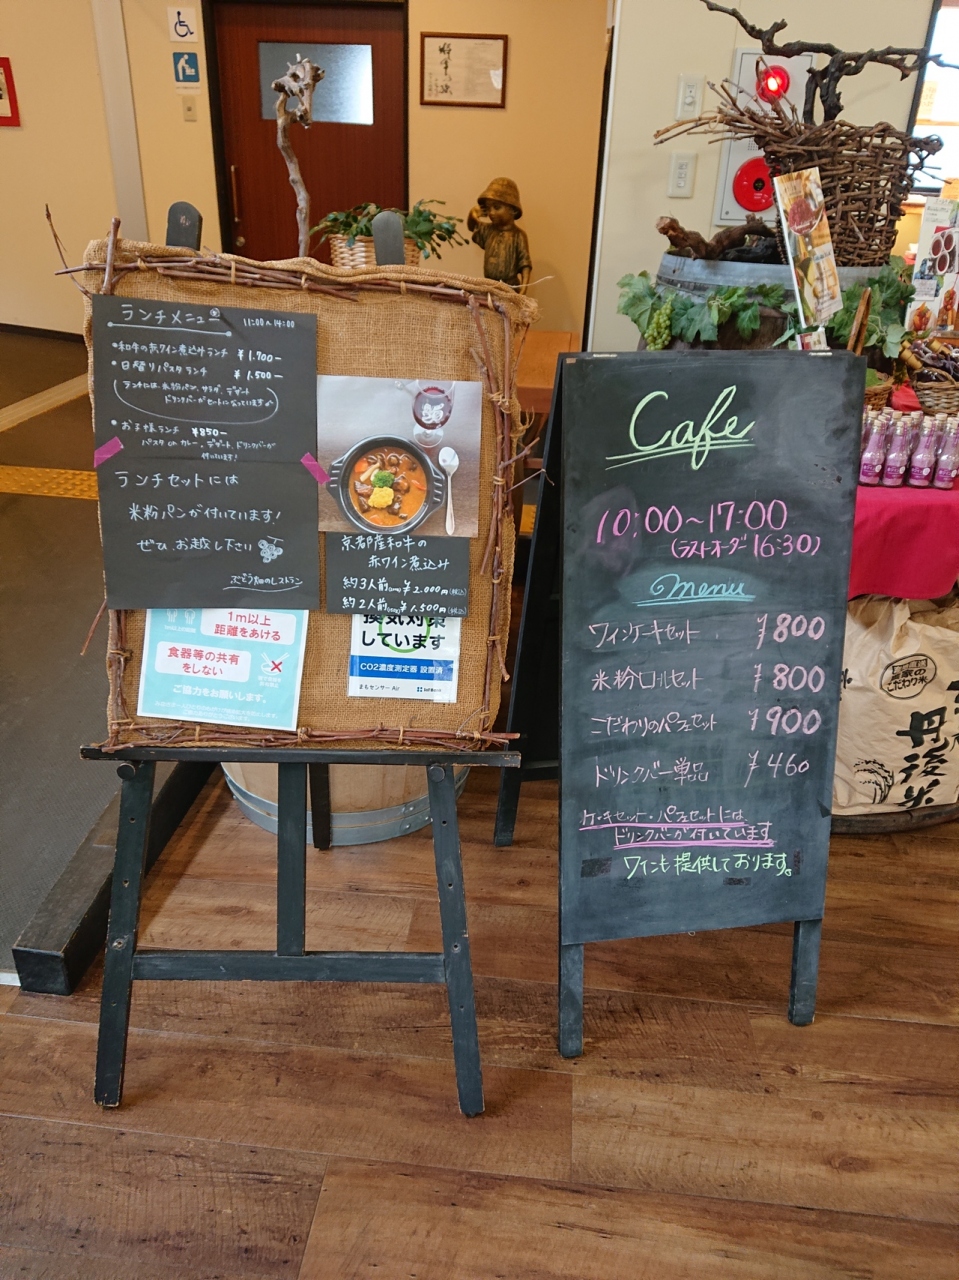 ランチメニュー 11:00〜14:00
•和牛の赤ワイン煮込みランチ ¥1,700-
•日替りパスタランチ ¥1,500-
(ランチには、米粉パン、サラダ、デザート
ドリンクバーがセットになっています。)
•お子様ランチ ¥850-
パスタ or カレー・デザート、ドリンクバーが
付いています!
ランチセットには
米粉パンが付いています!
ぜひ、お越し下さい
ぶどう畑のレストラン
京都産和牛の
赤ワイン煮込み
約3人前 ¥2,000
約2人前 ¥1,500
1m以上
距離をあける
食器等の共有
をしない
ご協力をお願いします。
換気対策
しています
CO2濃度測定器 設置済
まもセンサー Air
Cafe
10:00〜17:00
(ラストオーダー16:30)
menu
ワインケーキセット ¥800
米粉ロールセット ¥800
こだわりのパフェセット ¥900
ドリンクバー単品 ¥460
ケーキセット・パフェセットには、
ドリンクバーが付いています
ワインも提供しております。
農家の
こだわり米
丹後米